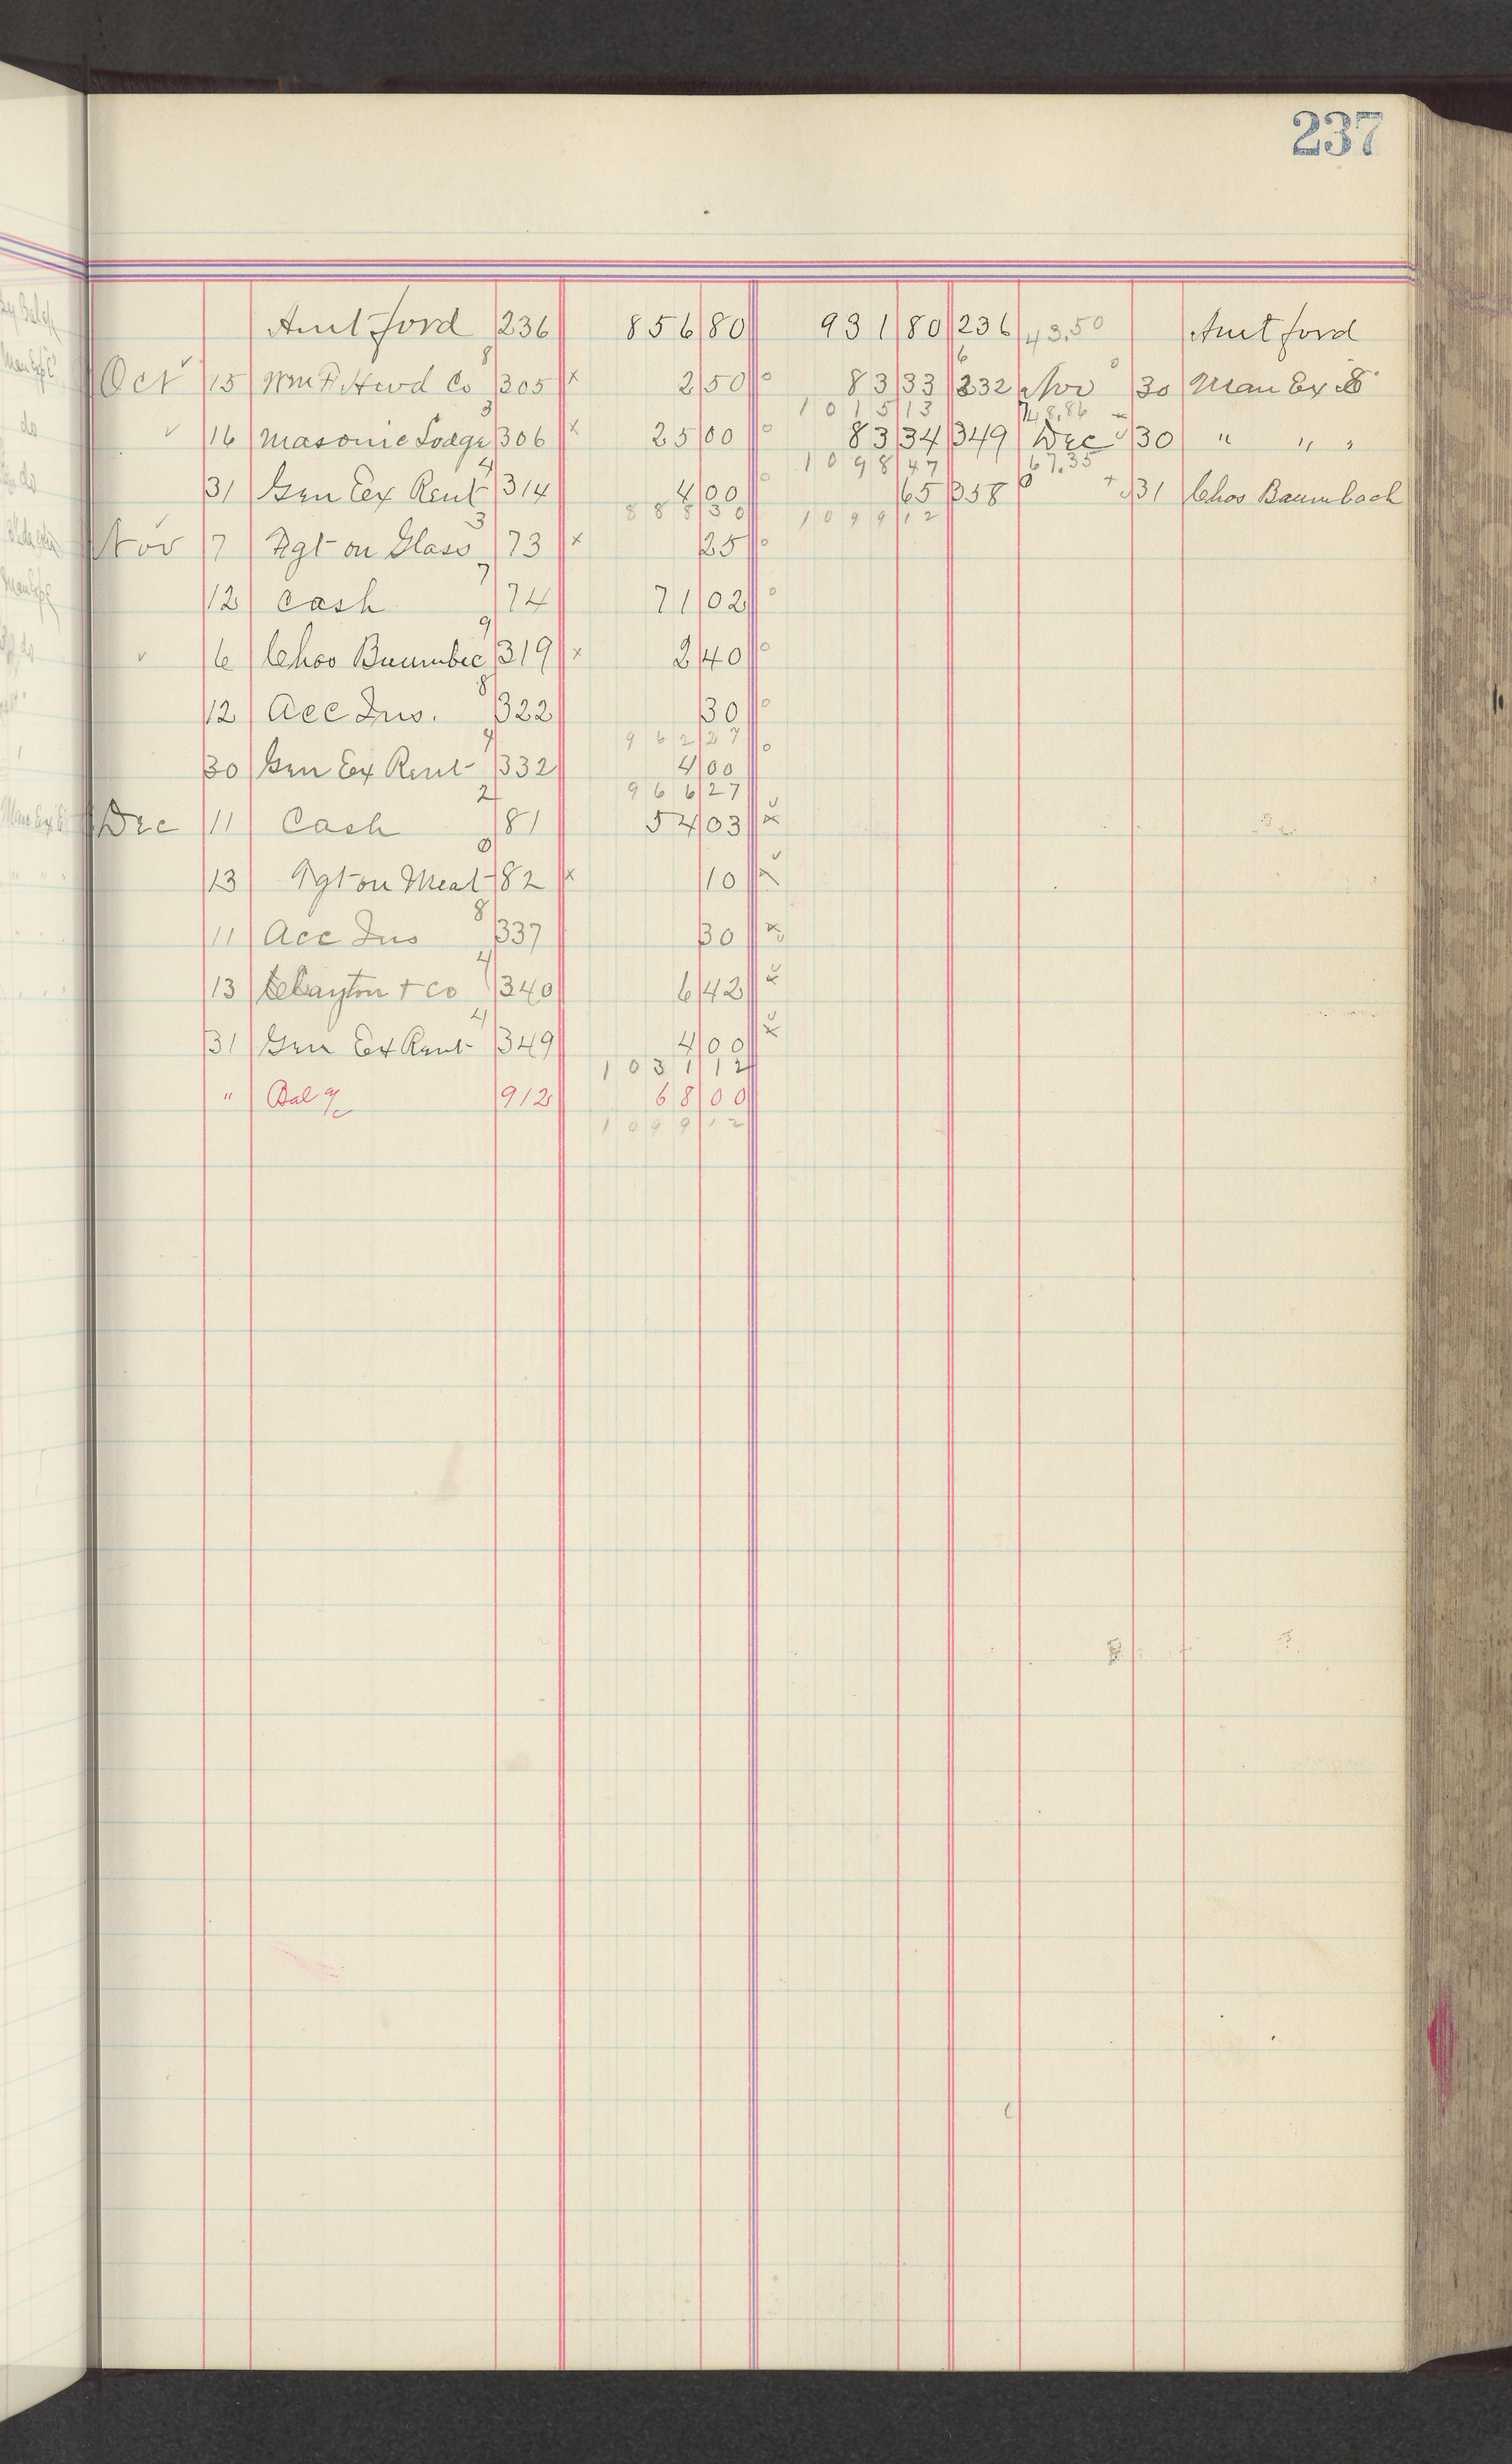 237
Amt ford 236 856 80 931 80 236 43.50 Amt ford
8 6
Oct 15 Wm F. Hewd Co 305 x 2 50 o 83 33 232 Nov 30 Man Ex
3 1015 13 48.86
✓ 16 Masonic Lodge 306 x 25 00 o 83 34 349 Dec 30 " " "
4 1098 47 67.35
31 Gen Ex Rent 314 4 00 o 65 358 31 Chas Baumbach
3 888 30 1099 12
Nov 7 Fgt on Glass 73 x 25 o
7
12 Cash 74 71 02 o
9
✓ 6 Chas Baumbac 319 x 2 40 o
8
12 Acc Ins. 322 30 o
4 962 27
30 Gen Ex Rent 332 4 00 o
2 966 27
Dec 11 Cash 81 54 03
0
13 Fgt on Meat 82 x 10
8
11 Acc Ins 337 30
4
13 Clayton + Co 340 6 42
4
31 Gen Ex Rent 349 4 00
1031 12
" Bal a/c 912 68 00
1099 12